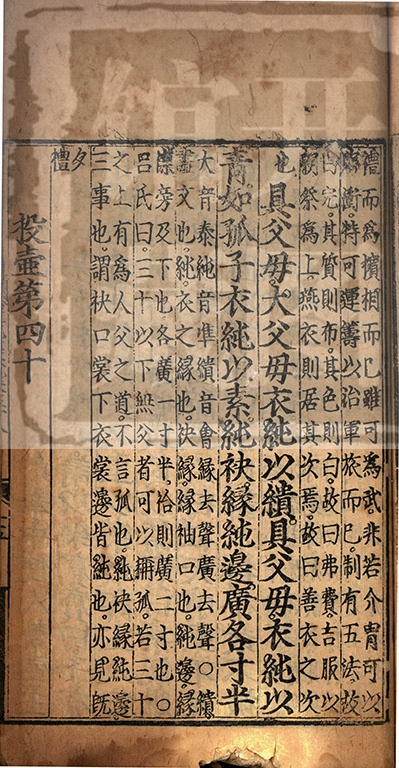 禮而為擯相而已雖可為武非若介冑可以
臨衝特可運籌以治軍旅而已制有五法故
曰完其質則布其色則白故曰弗費吉服以
朝祭為上燕衣則居其次焉故曰善衣之次
也
具父母大父母衣純以繢具父母衣純以
青如孤子衣純以素純袂緣純邊廣各寸半
大音泰純音準繢音會緣去聲廣去聲○繢
畫文也純衣之緣也袂緣緣袖口也純邊緣
襟旁及下也各廣一寸半袷則廣二寸也○
呂氏曰三十以下無父者可以稱孤若三十
之上有為人父之道不言孤也純袂緣純邊
三事也謂袂口裳下衣裳邊皆純也亦見旣
夕禮
投壺第四十